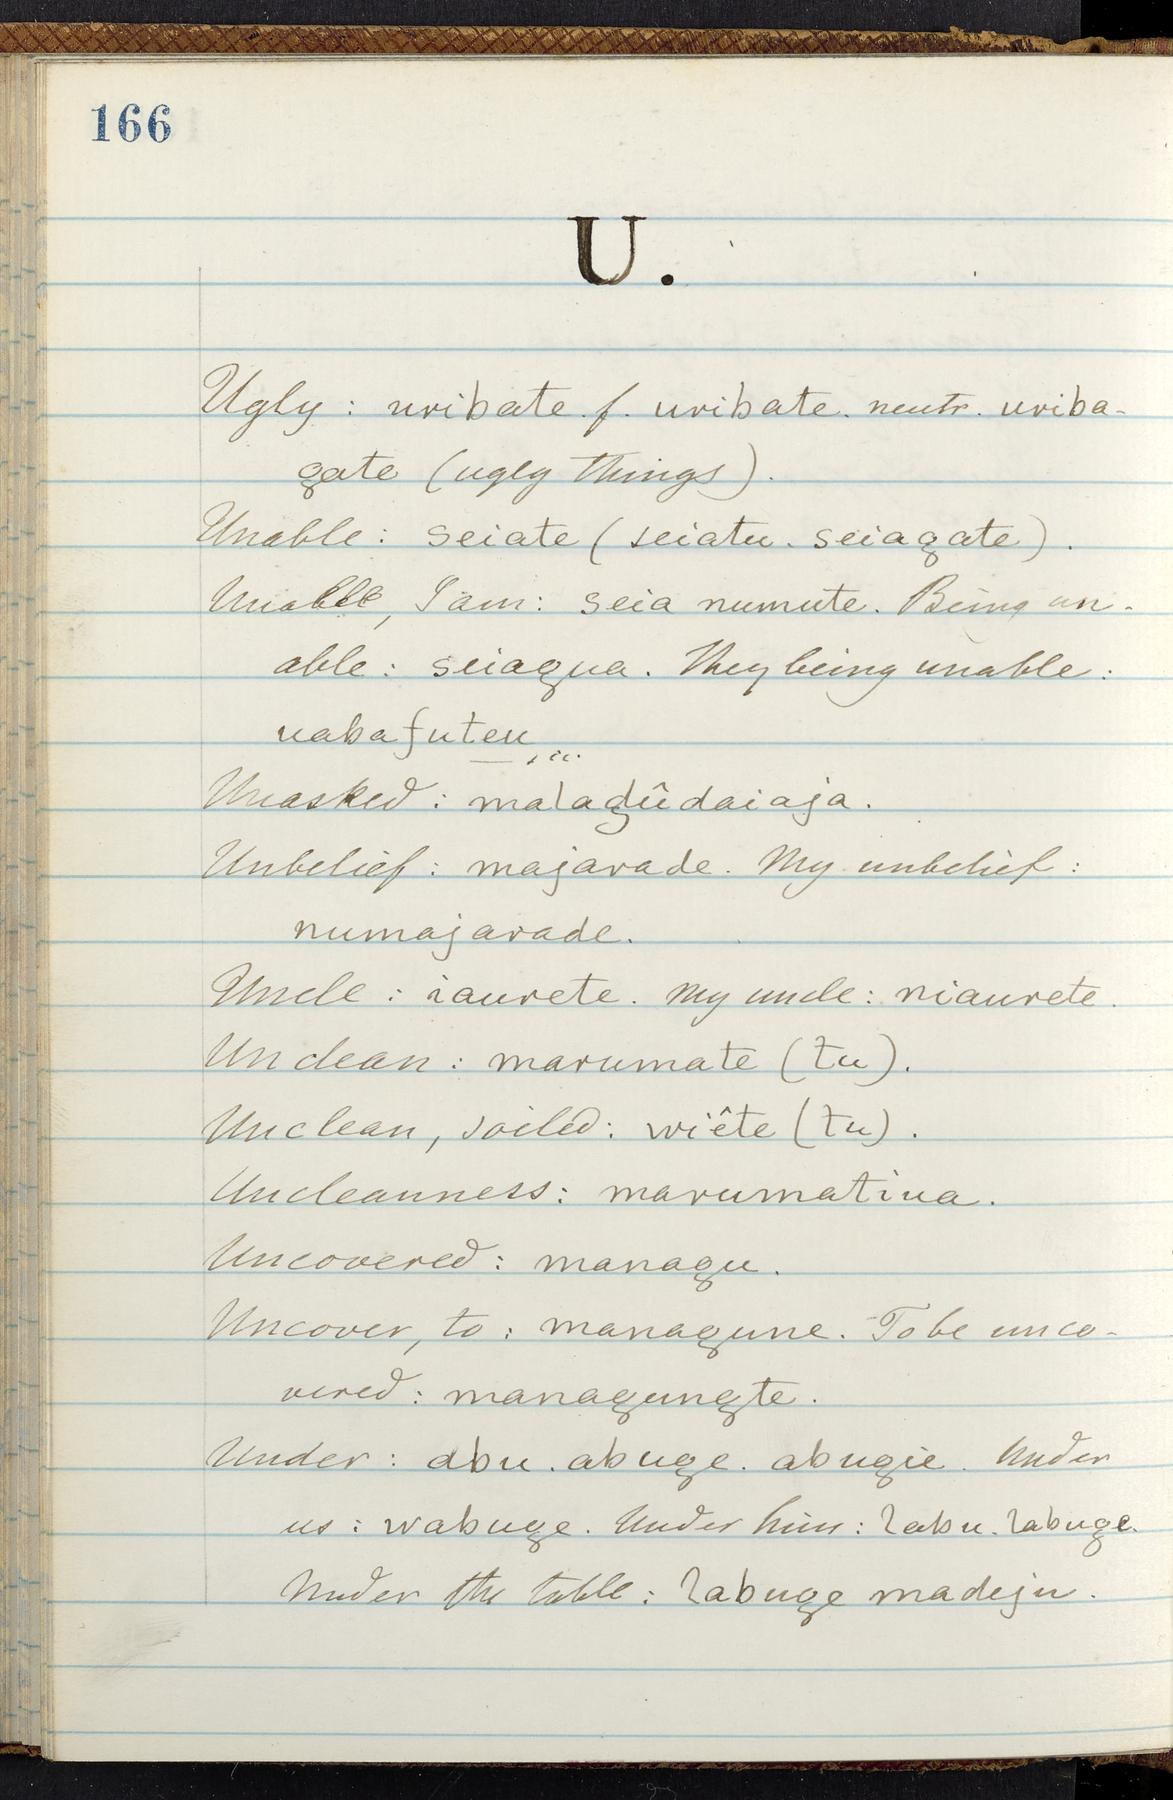 166
U.
Ugly: uribate. f. uribate. neutr. uriba-
gate (ugly things).
Unable: seiate (seiatu. seiagate).
Unable, I am: seia numute. Being un-
able: seiagua. They being unable:
uabafuteu
Unasked: malagûdaiaja.
Unbelief: majarade. My unbelief:
numajarade.
Uncle: iaurete. My uncle: niaurete.
Unclean: marumate (tu).
Unclean, soiled: wiête (tu).
Uncleanness: marumatiua.
Uncovered: managu.
Uncover, to: managune. To be unco-
vered: managungte.
Under: abu. abuge. abugie. Under
us: wabuge. Under him: labu. labuge.
Under the table: labuge madeju.